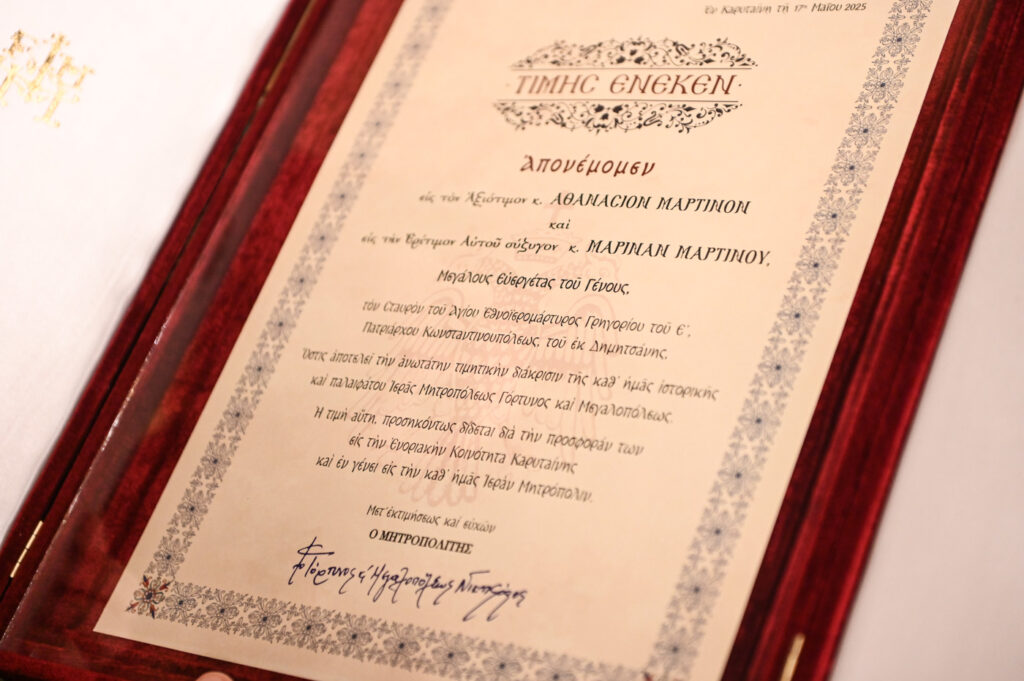 Ἐν Καρυταίνῃ τῇ 17ῃ Μαΐου 2025
ΤΙΜΗС ЄΝЄΚЄΝ
Ἀπονέμομεν
εἰς τὸν Ἀξιότιμον κ. ΑΘΑΝΑСΙΟΝ ΜΑΡΤΙΝΟΝ
καὶ
εἰς τὴν Ἐρίτιμον Αὐτοῦ σύζυγον κ. ΜΑΡΙΝΑΝ ΜΑΡΤΙΝΟΥ,
Μεγάλους Εὐεργέτας τοῦ Γένους,
τὸν Σταυρὸν τοῦ Ἁγίου Ἐθνοϊερομάρτυρος Γρηγορίου τοῦ Ε΄,
Πατριάρχου Κωνσταντινουπόλεως, τοῦ ἐκ Δημητσάνης,
Ὅστις ἀποτελεῖ τὴν ἀνωτάτην τιμητικὴν διάκρισιν τῆς καθ᾽ ἡμᾶς ἱστορικῆς
καὶ παλαιφάτου Ἱερᾶς Μητροπόλεως Γόρτυνος καὶ Μεγαλοπόλεως.
Ἡ τιμὴ αὕτη, προσηκόντως δίδεται διὰ τὴν προσφοράν των
εἰς τὴν Ἐνοριακὴν Κοινότητα Καρυταίνης
καὶ ἐν γένει εἰς τὴν καθ᾽ ἡμᾶς Ἱερὰν Μητρόπολιν.
Μετ᾽ ἐκτιμήσεως καὶ εὐχῶν
Ο ΜΗΤΡΟΠΟΛΙΤΗΣ
Γόρτυνος & Μεγαλοπόλεως Νικηφόρος